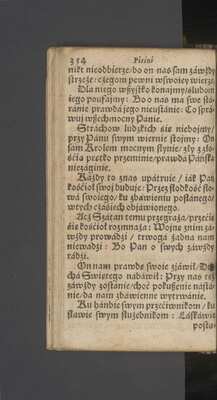 354 Piesni
nikt nieodbierze/ bo on nas sam záwżdy
strzeże/ czegom pewni w swoiey wierze.
Dla niego wszytko konaymy/ ślubom
iego poufaymy: Bo o nas ma swe stá-
ránie prawdá jego nieustánie: Co sprá-
wuj wszechmocny Pánie.
Stráchow ludzkich sie nieboymy/
przy Pánu swym wiernie stoymy: On
sam Krolem mocnym słynie/ zły z zło-
ścią prętko przeminie/ prawdá Páńska
niezáginie.
Káżdy to znas upátruie/ iák Pan
kościoł swoj buduje: Przez słodkość sło-
wá swoiego/ ku zbáwieniu posłánego/
w tych czásiech objáwionego.
Acz Szátan temu przegraża/ przecię
się kościoł rozmnaża: Wojnę znim zá-
wżdy prowádzi/ trwogá żadna nam
niewádzi: Bo Pan o swych záwżdy
rádzi.
On nam prawdę swoię zjáwił/ Du-
chá Swiętego nábáwił: Przy nas też
záwżdy zostánie/ choć pokuszenie nastá-
nie/ da nam zbáwienne wytrwánie.
Ku háńbie swym przećiwnikom/ ku
sławie swym służebnikom: Łáskáwie
posta-